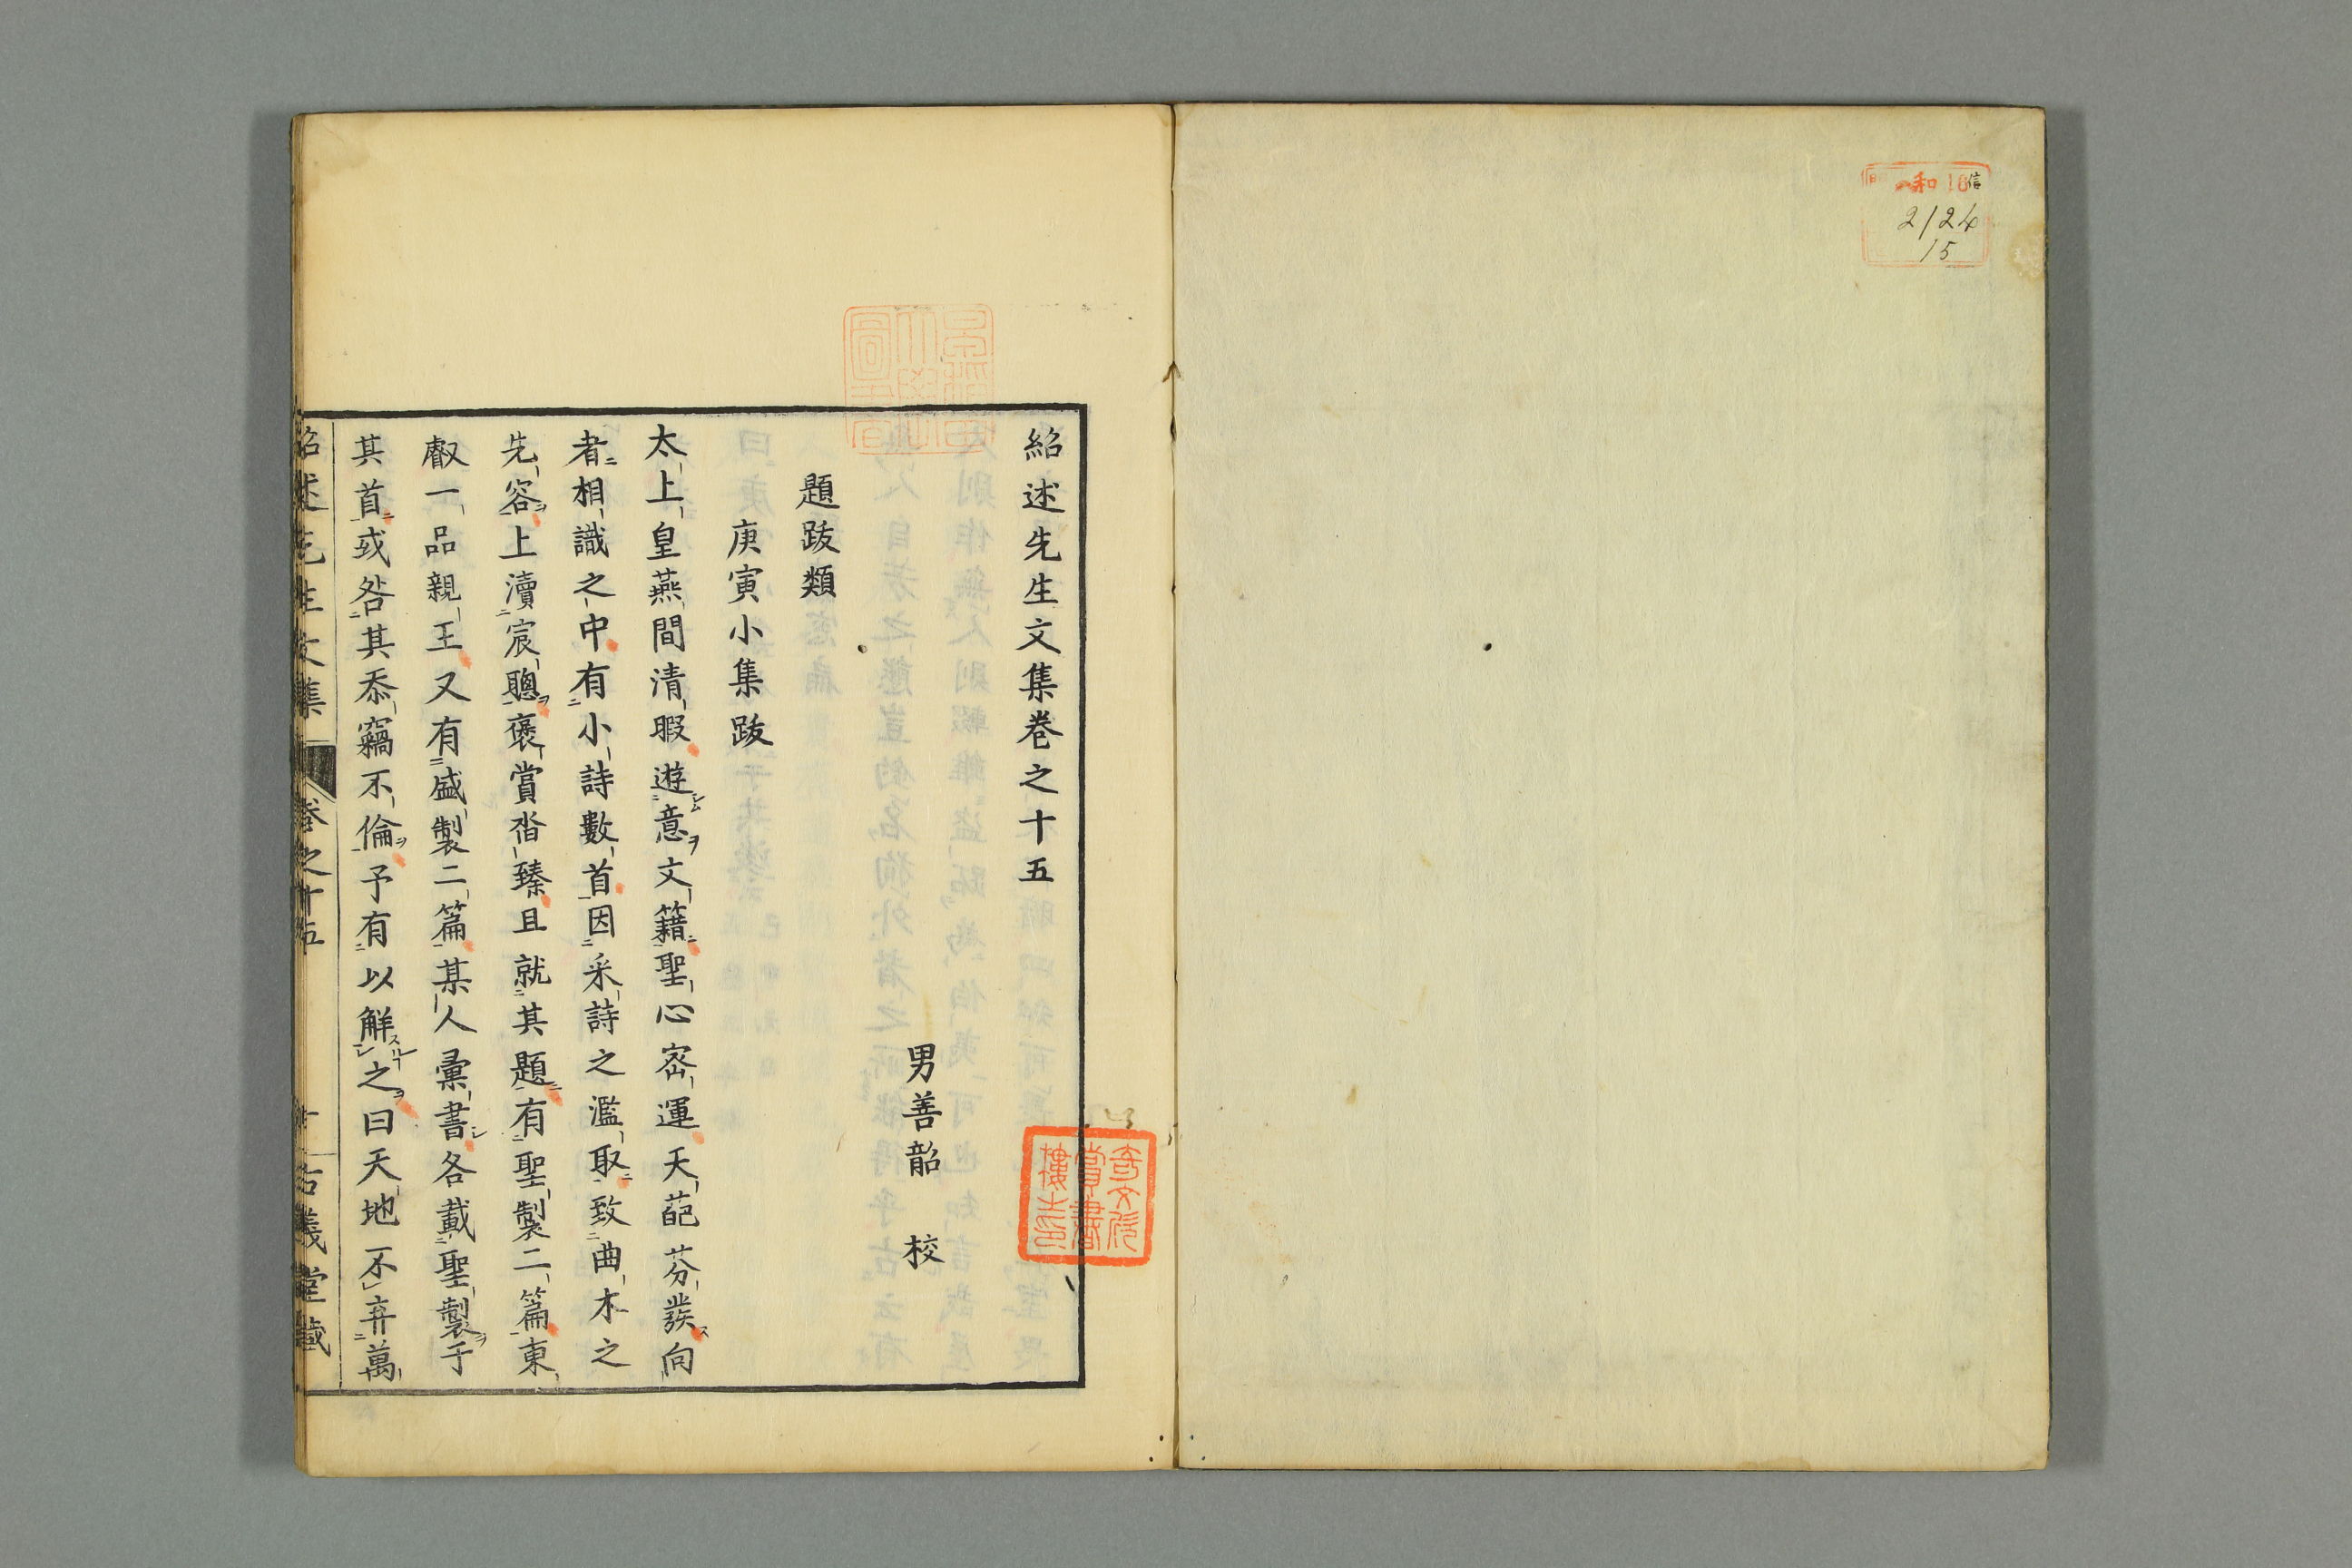 和
2124
15
紹述先生文集卷之十五
男善韶 校
題跋類
庚寅小集跋
太上皇燕間清暇遊意文籍聖心宻運天葩芬發向
者相識之中有小詩數首因采詩之濫取致曲木之
先容上瀆宸聰褒賞沓臻且就其題有聖製二篇東
叡一品親王又有盛製二篇某人彙書各戴聖製于
其首或咎其忝竊不倫予有以解之曰天地不弃萬
紹述先生文集 卷之十五 古義堂藏
奇文欣
賞書
樓主印